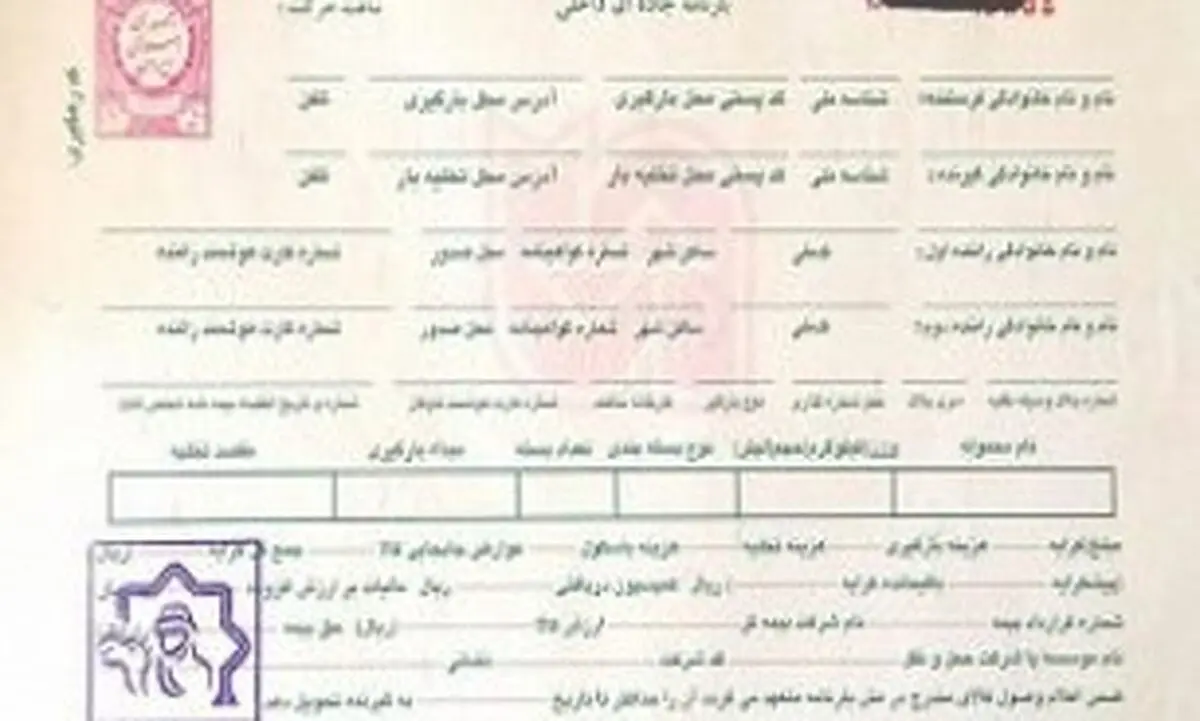 بارنامه جاده ای داخلی ساعت حرکت:
کد رهگیری:
نام و نام خانوادگی فرستنده: شناسه ملی کد پستی محل بارگیری آدرس محل بارگیری تلفن
نام و نام خانوادگی گیرنده: شناسه ملی کد پستی محل تخلیه بار آدرس محل تخلیه بار تلفن
نام و نام خانوادگی راننده اول: کدملی ساکن شهر شماره گواهینامه محل صدور شماره کارت هوشمند راننده
نام و نام خانوادگی راننده دوم: کدملی ساکن شهر شماره گواهینامه محل صدور شماره کارت هوشمند راننده
نوع بارگیر شماره کارت هوشمند
نام محموله نوع بسته بندی تعداد بسته مبداء بارگیری مقصد تخلیه
هزینه بارگیری هزینه تخلیه هزینه باسکول عوارض جابجایی کالا جمع کل کرایه ریال
پیشکرایه باقیمانده کرایه ریال کمیسیون دریافتی ریال مالیات بر ارزش افزوده
شماره قرارداد بیمه نام شرکت بیمه گر ارزش کالا (ریال) حق بیمه
نام موسسه یا شرکت حمل و نقل کد شرکت نشانی
ضمن اعلام وصول کالای مندرج در متن بارنامه متعهد می گردد آن را حداکثر تا تاریخ به گیرنده تحویل دهد